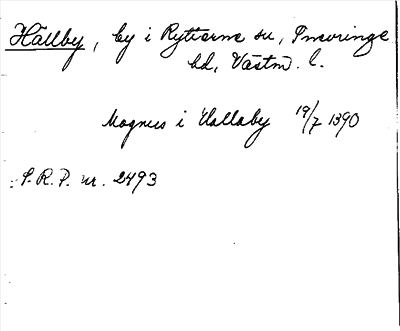 Hällby, by i Rytterne sn, Snevringe
hd, Västm. l.
Magnus i Hallaby 19/7 1390
S.R.P. nr. 2493